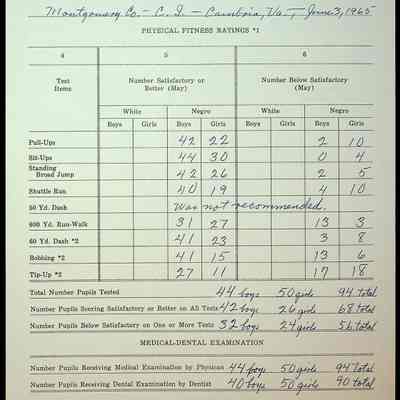 Montgomery Co. - C. I. - Cambria, Va., June 3, 1965
PHYSICAL FITNESS RATINGS *1
4 5 6
Test Items Number Satisfactory or Better (May) Number Below Satisfactory (May)
White Negro White Negro
Boys Girls Boys Girls Boys Girls Boys Girls
Pull-Ups 42 22 2 10
Sit-Ups 44 30 0 4
Standing Broad Jump 42 26 2 5
Shuttle Run 40 19 4 10
50 Yd. Dash Was not recommended.
600 Yd. Run-Walk 31 27 13 3
60 Yd. Dash *2 41 23 3 8
Bobbing *2 41 15 13 6
Tip-Up *2 27 11 17 18
Total Number Pupils Tested 44 boys 50 girls 94 total
Number Pupils Scoring Satisfactory or Better on All Tests 42 boys 26 girls 68 total
Number Pupils Below Satisfactory on One or More Tests 32 boys 24 girls 56 total
MEDICAL-DENTAL EXAMINATION
Number Pupils Receiving Medical Examination by Physician 44 boys 50 girls 94 total
Number Pupils Receiving Dental Examination by Dentist 40 boys 50 girls 90 total